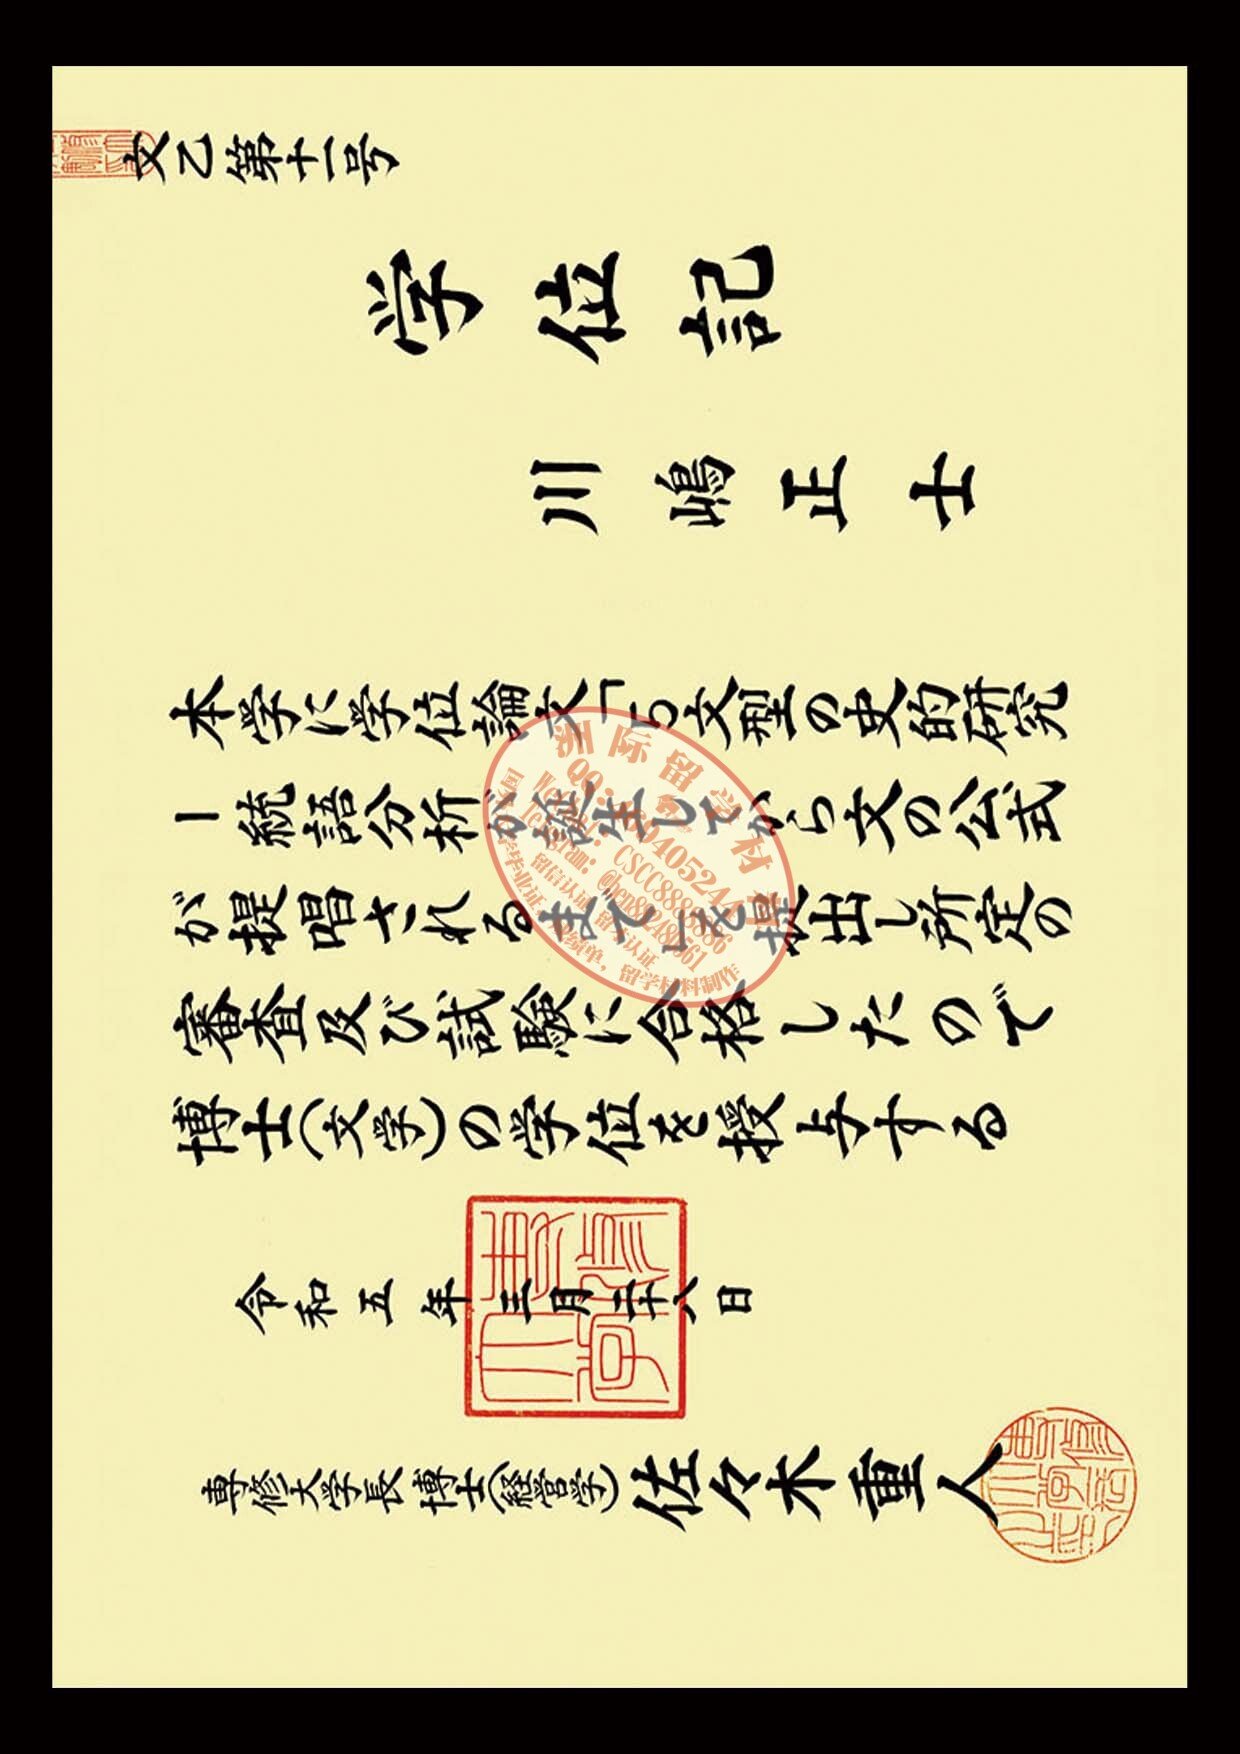 文乙第十一号
学位記
川嶋正士
本学に学位論文「5文型の史的研究
ー統語分析が誕生してから文の公式
が提唱されるまで」を提出し所定の
審査及び試験に合格したので
博士(文学)の学位を授与する
令和五年三月二十八日
専修大学長 博士(経営学) 佐々木重人
洲际留学材
留信认证 留服认证
留学材料制作